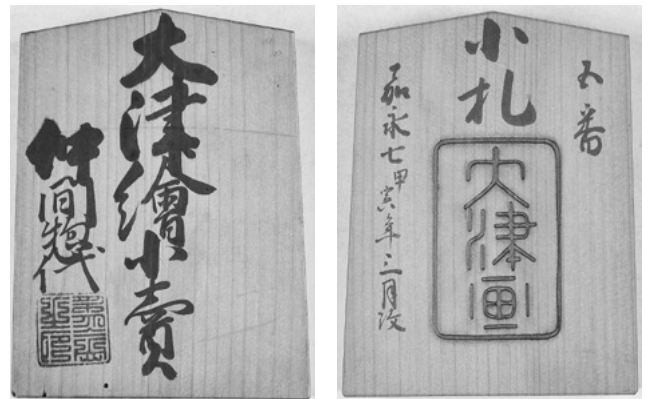 大津繪小賣
仲間惣代
五番
小札
大津画
嘉永七甲寅年三月改